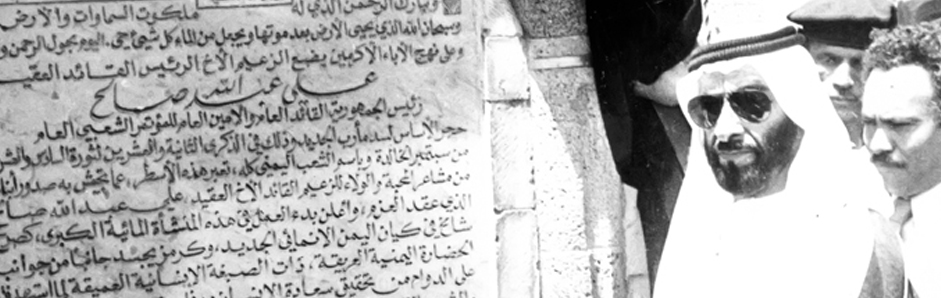 وتبارك الرحمن الذي له ملكوت السماوات والأرض
وسبحان الله الذي يحيي الأرض بعد موتها ويجعل من الماء كل شيئ حي. اليوم بحول الرحمن
وعلى نهج الآباء الأكرمين يضع الزعيم الأخ الرئيس القائد العقيد
علي عبد الله صالح
رئيس الجمهورية القائد العام والأمين العام للمؤتمر الشعبي العام
حجر الأساس لسد مأرب الجديد وذلك في الذكرى الثانية والعشرين لثورة السادس
من سبتمبر الخالدة وباسم الشعب اليمني كله، تعبر هذه الأسطر، عما يجيش به صدور
من مشاعر المحبة والولاء للزعيم القائد الأخ العقيد علي عبد الله صالح
الذي عقد العزم، وأعلن بدء العمل في هذه المنشأة المائية الكبرى،
شامخ في كيان اليمن الإنمائي الجديد، وكرمز يجسد جانبا من جوانب
الحضارة اليمنية العريقة، ذات الصبغة الإنسانية العميقة
على الدوام من تحقيق سعادة